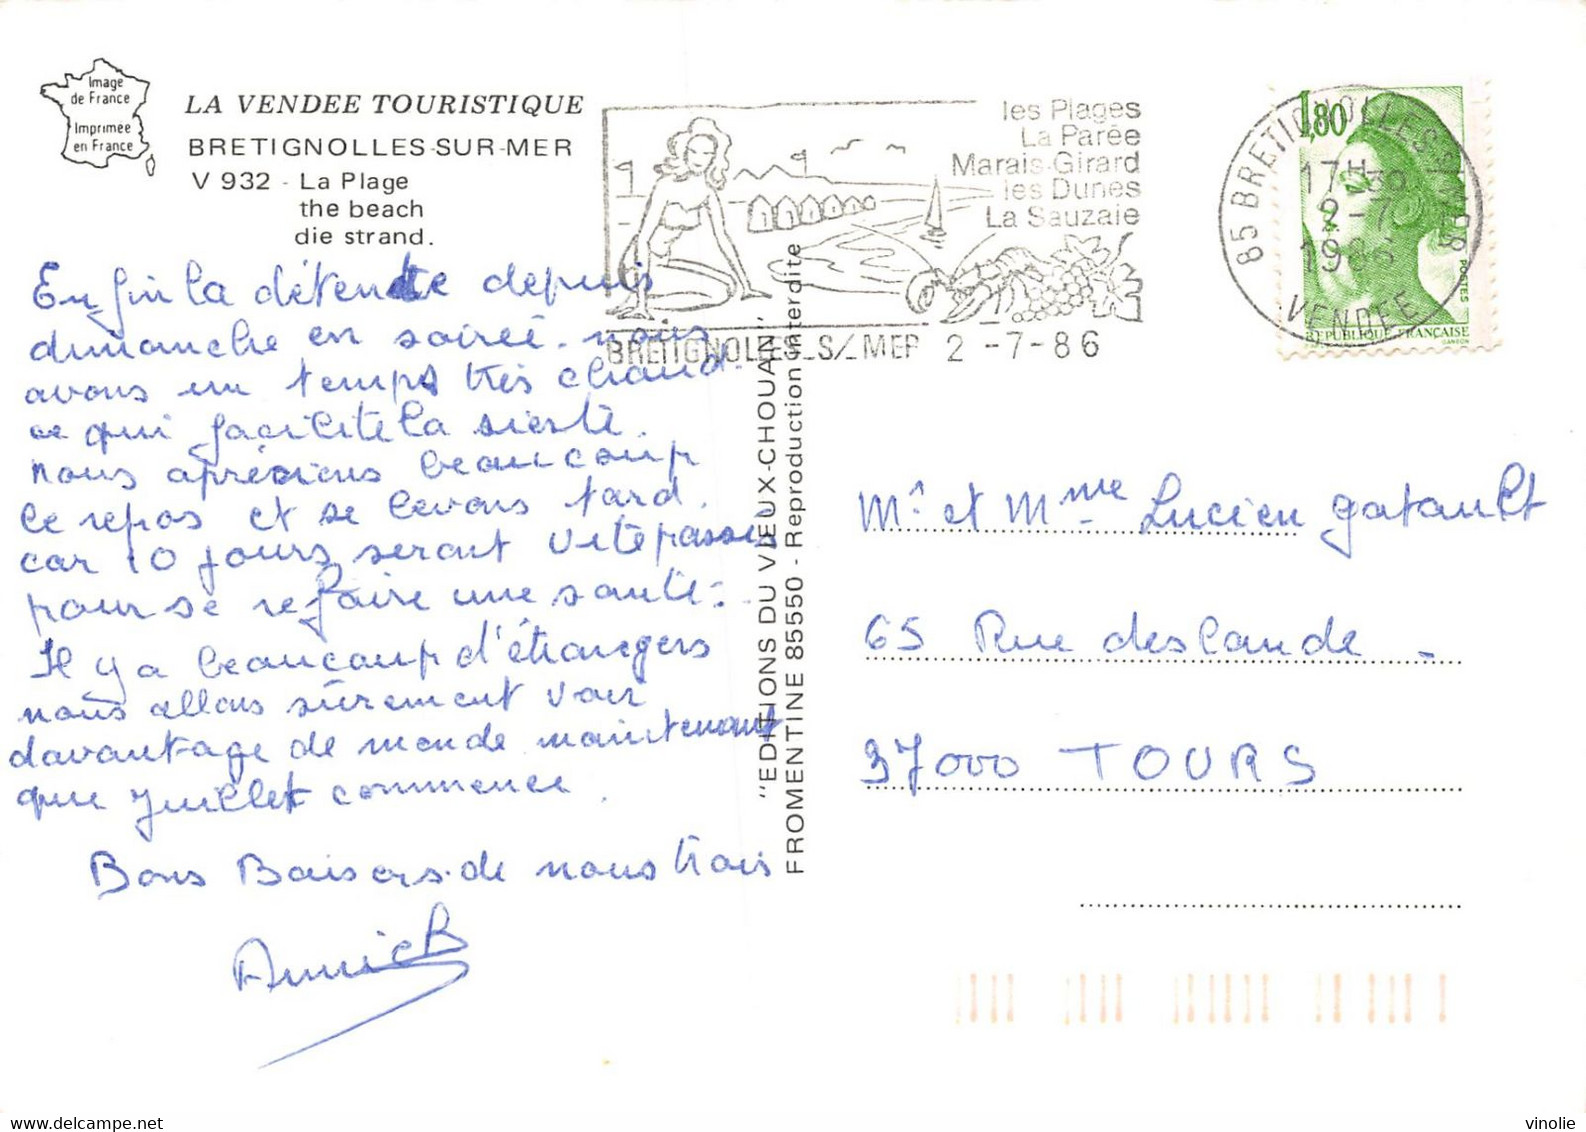 Image
de France
Imprimee
en France
LA VENDEE TOURISTIQUE
BRETIGNOLLES-SUR-MER
V 932 - La Plage
the beach
die strand.
Enfin la détente depuis
dimanche en soirée. nous
avons un temps très chaud.
ce qui facilite la sieste.
nous aprécions beaucoup
le repos et se levons tard.
car 10 jours seront vite passés
pour se refaire une santé.
Il y a beaucoup d'étrangers
nous allons sûrement voir
davantage de monde maintenant
que Juillet commence.
Bons Baisers de nous trois
Annick
les Plages
La Parée
Marais-Girard
les Dunes
La Sauzaie
BRETIGNOLLES S/ MER 2 -7-86
85 BRETIGNOLLES-S-MER
17H30
2-7
1986
VENDEE
1,80
POSTES
REPUBLIQUE FRANÇAISE
GANDON
"EDITIONS DU VIEUX-CHOUAN"
FROMENTINE 85550 - Reproduction interdite
Mr et Mme Lucien Gatault
65 Rue deslande -
37000 TOURS
vinolie